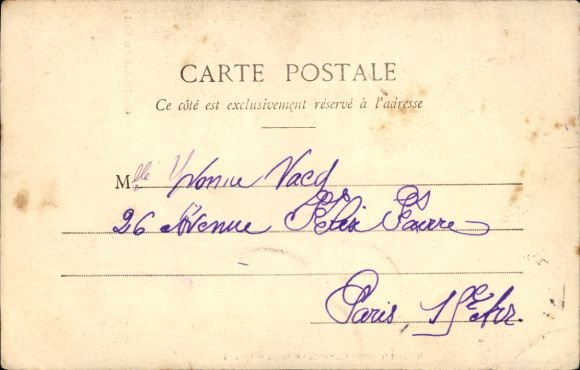 CARTE POSTALE
Ce côté est exclusivement réservé à l'adresse
Mlle Yvonne Vacq
26 Avenue Félix Faure
Paris, 15e Arr.